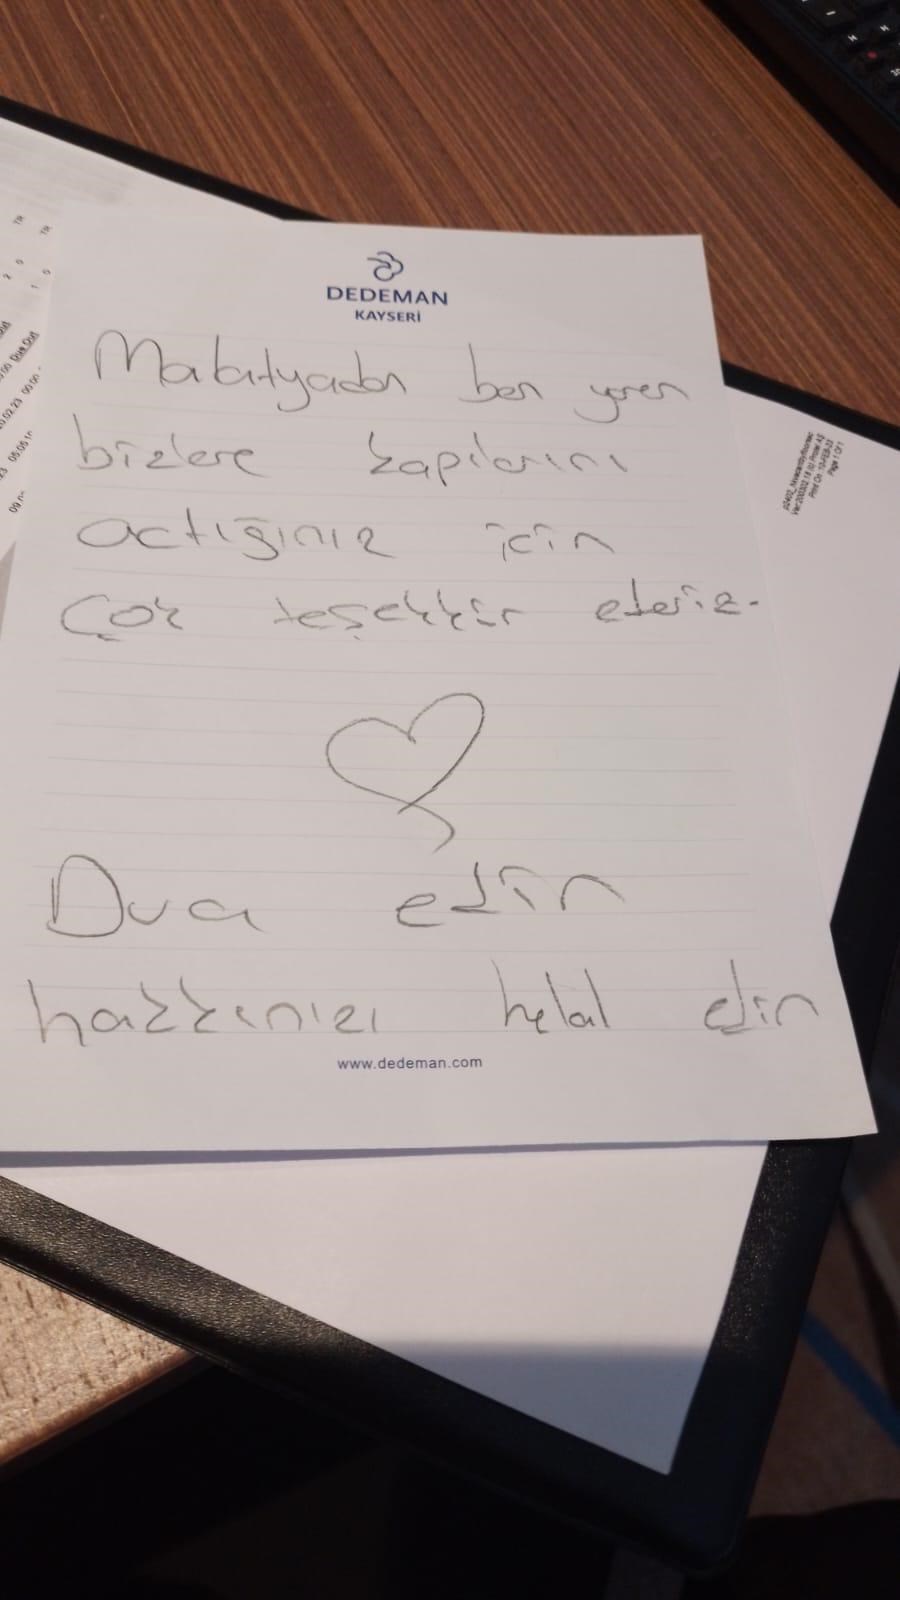 DEDEMAN
KAYSERİ
Malatyadan ben yaren
bizlere kapılarını
actığınız için
Çok teşekkür ederiz.
Dua edin
hakkınızı helal edin
www.dedeman.com
Due Out
Page 1 Of 1